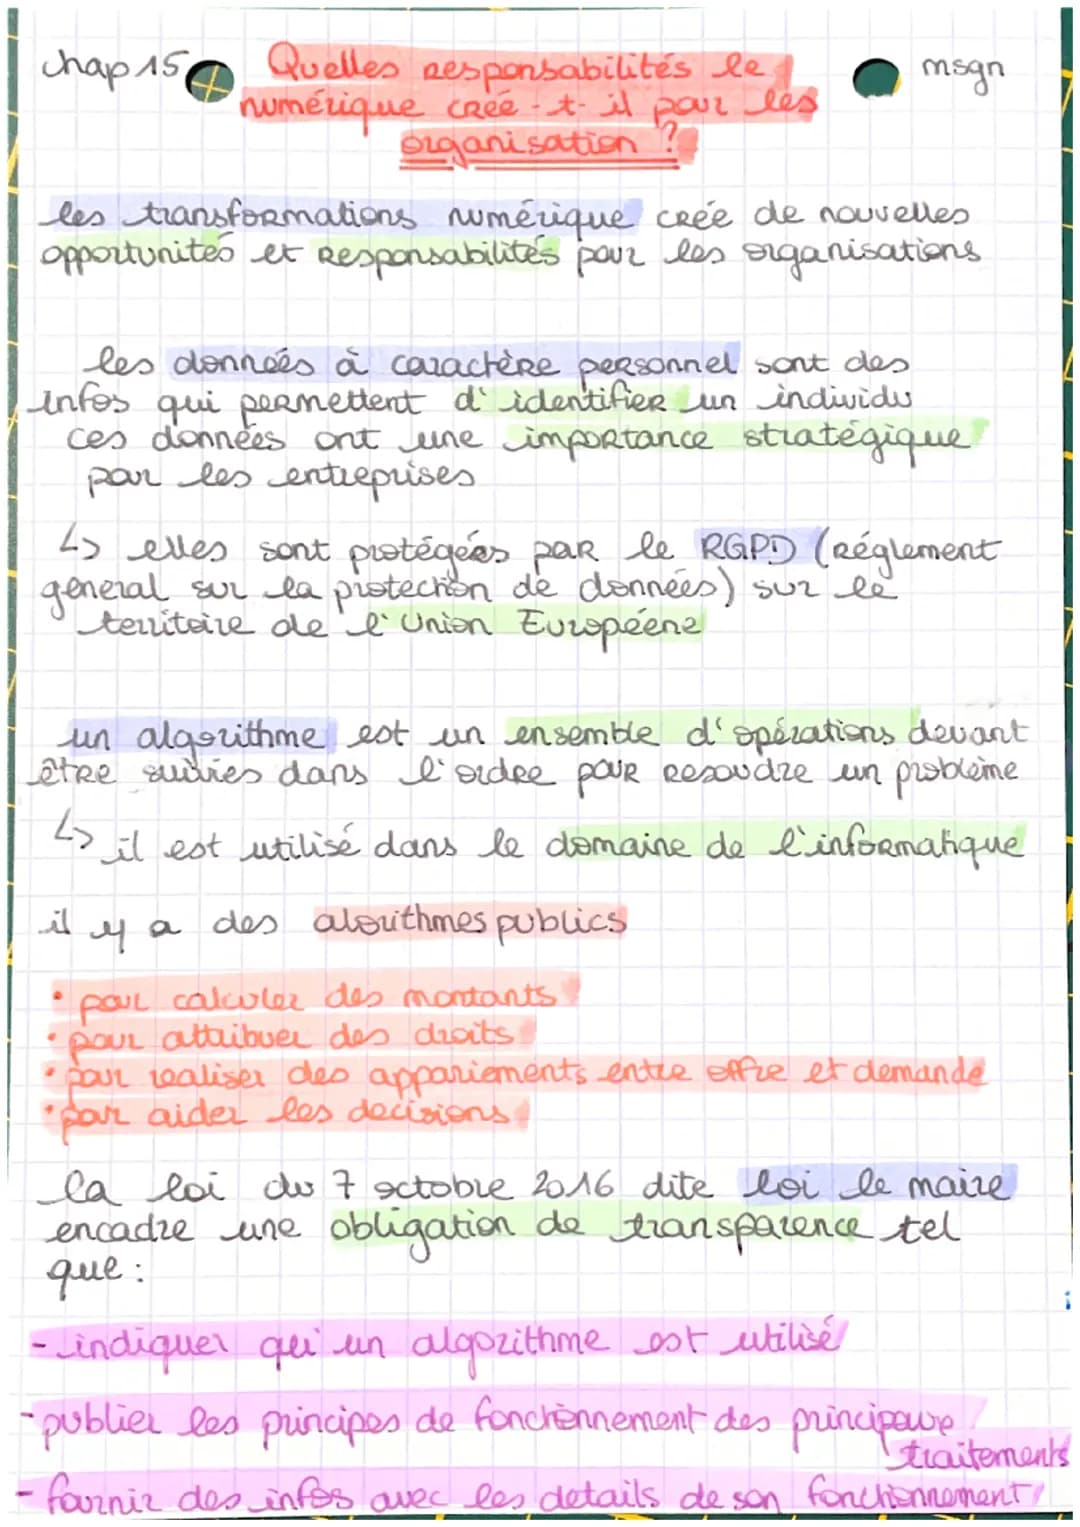 chap 15 Quelles responsabilités le msgn
numérique créé-t-il pour les
organisation ?
les transformations numérique crée de nouvelles
opportunités et responsabilités pour les organisations
les données à caractère personnel sont des
infos qui permettent d'identifier un individu
ces données ont une importance stratégique
pour les entreprises
↳ elles sont protégées par le RGPD (réglement
general sur la protection de données) sur le
territoire de l'Union Européene
un algorithme est un ensemble d'opérations devant
être suivies dans l'ordre pour resoudre un problème
↳ il est utilisé dans le domaine de l'informatique
il y a des alorithmes publics
• pour calculer des montants
• pour attribuer des droits
• pour realiser des appariements entre offre et demande
• pour aider les decisions
la loi du 7 octobre 2016 dite loi le maire
encadre une obligation de transparence tel
que :
- indiquer qu'un algorithme est utilisé
- publier les principes de fonctionnement des principaux
traitements
- fournir des infos avec les details de son fonctionnement